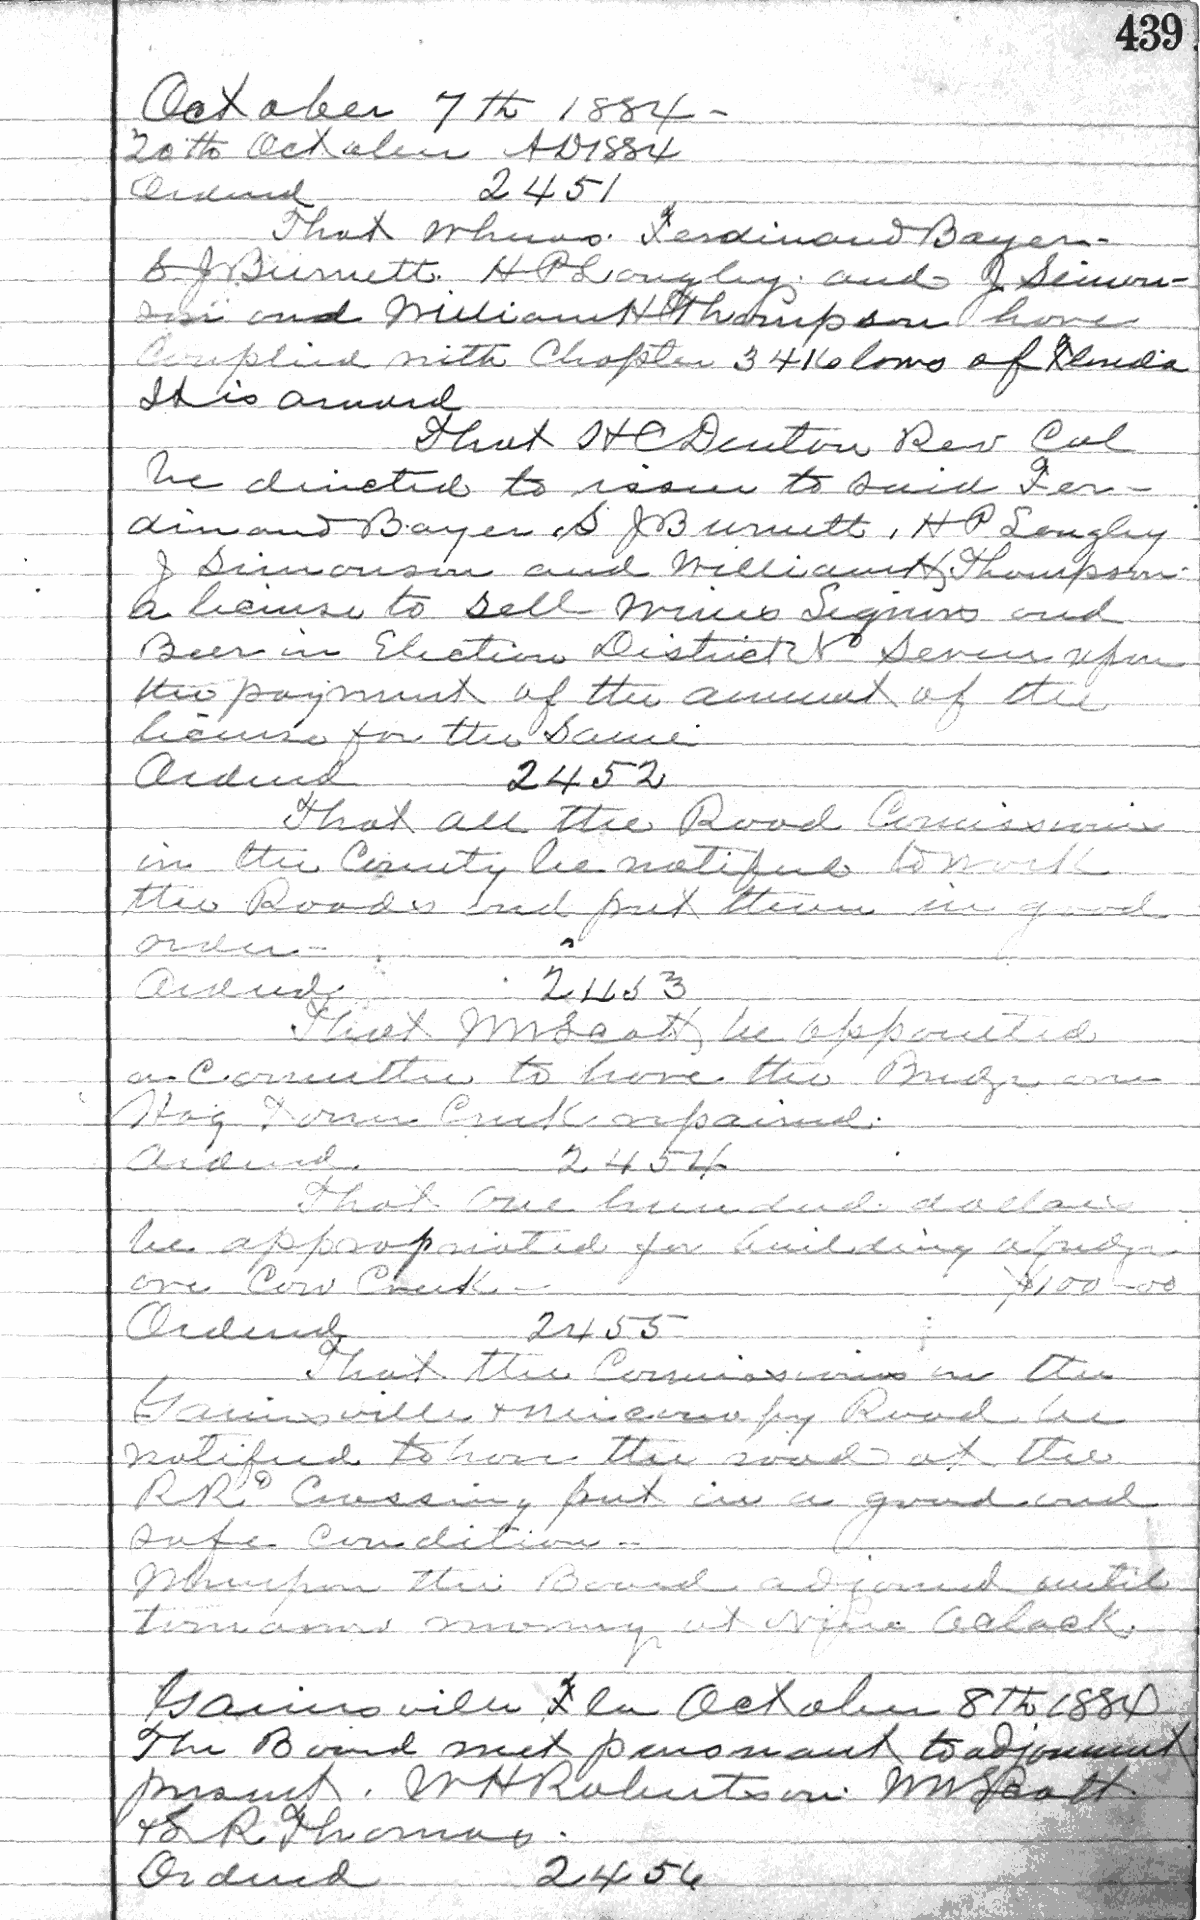 439
October 7th 1884-
20th October AD 1884
Ordered 2451
That Whereas. Ferdinand Bayer-
S J Burnett. H P Langley. and J Simon-
son and William H Thompson have
Complied with Chapter 3416 laws of Florida
It is ordered
That H C Denton Rev Col
be directed to issue to said Fer-
dinand Bayer, S J Burnett, H P Langley
J Simonson and William H Thompson
a license to sell Wines Liquors and
Beer in Election District No Seven upon
the payment of the amount of the
license for the Same
Ordered 2452
That all the Road Comissioners
in the County be notified to work
the Roads and put them in good
order-
Ordered 2453
That W W Scott be appointed
a Committee to have the Bridge on
Hog Town Creek repaired.
Ordered. 2454
That one hundred dollars
be appropriated for building a bridge
on Cow Creek- $100-00
Ordered 2455
That the Comissioners on the
Gainesville & Micanopy Road be
notified to have the road at the
R Rd Crossing put in a good and
safe condition-
Whereupon the Board adjorned until
tomorrow morning at Nine Oclock.
Gainesville Fla October 8th 1884
The Board met pursuant to adjornment
present. W H Robertson. W W Scott
& S R Thomas.
Ordered 2456